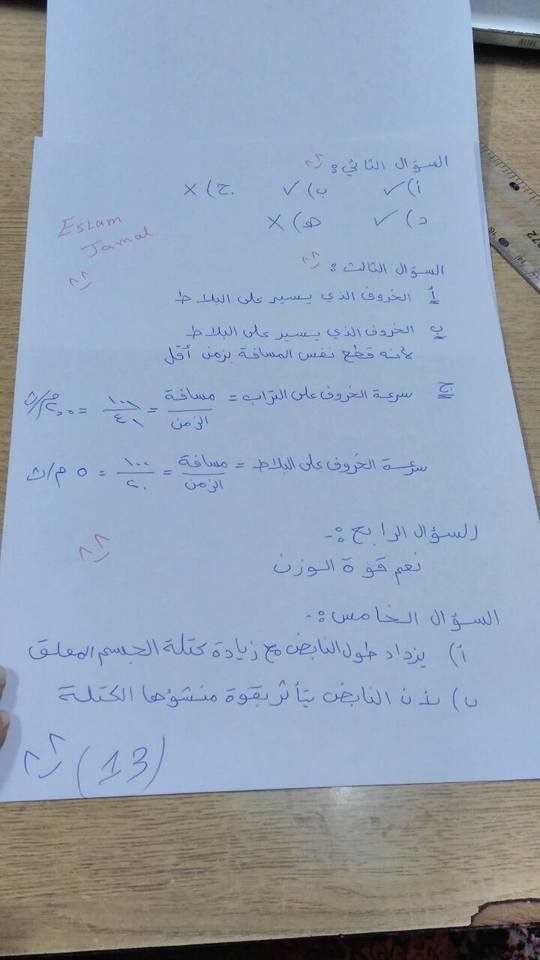 السؤال الثاني :
أ) ✓ ب) ✓ ج) ×
د) ✓ هـ) ×
Eslam
Jamal
السؤال الثالث :
أ الخروف الذي يسير على البلاط
ب الخروف الذي يسير على البلاط
لأنه قطع نفس المسافة بزمن أقل
ج سرعة الخروف على التراب = مسافة / الزمن =
سرعة الخروف على البلاط = مسافة / الزمن = ١٠٠ / ٢٠ = ٥ م/ث
السؤال الرابع :-
نعم قوة الوزن
السؤال الخامس :-
أ) يزداد طول النابض مع زيادة كتلة الجسم المعلق
ب) لأن النابض يتأثر بقوة منشؤها الكتلة
(13)